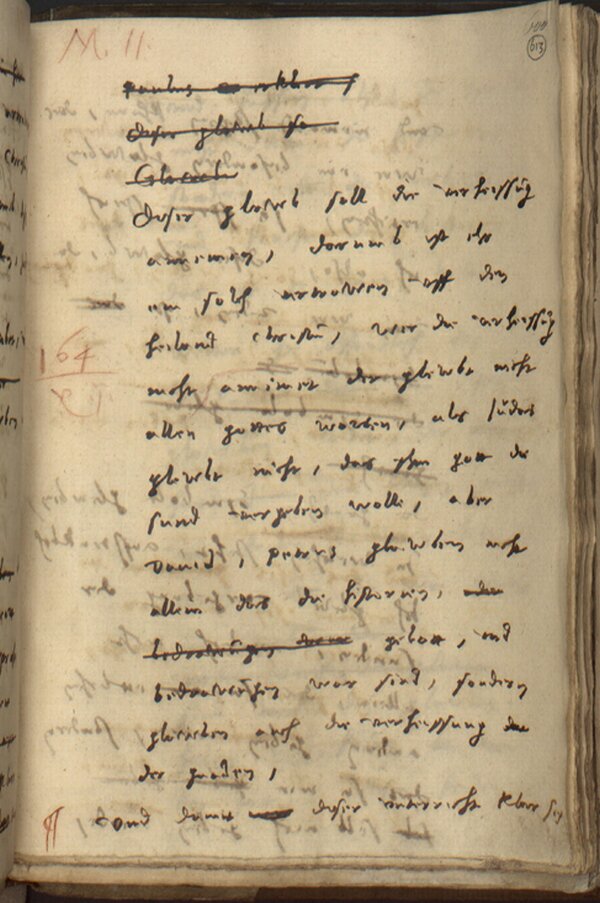 M. 11.
613
Paulus
dieser glaub so
Glauben
dieser glaub soll die verheissung
annemen, darumb ist ehr
ein solch vertrawen auff den
heiland Christum, wer die verheissung
164
nicht annimet der glewbt nicht
allen gottes worten, als Judas
glewbt nicht, das ihm gott die
sund vergeben wolle, aber
David, Petrus glewben nicht
allein das die historien,
gebott, und
bedrawungen war sind, sondern
glauben auch die verheissung
der gnaden,
Und damit dieser unterricht klar sey